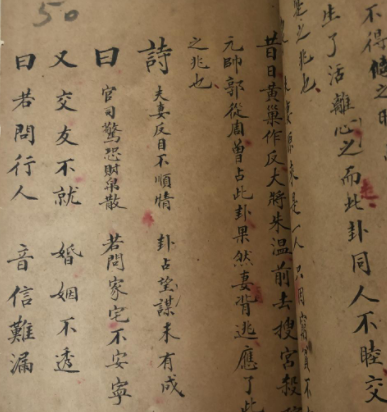 不得
生了活離心之而此卦同人不睦交
之兆也
昔日黃巢作反大將朱温前去搜宮殺
元帥郭從周曾占此卦果然妻背逃應了
之兆也
詩 夫妻反目不順情 卦占望謀未有成
曰 官司驚恐財帛散 若問家宅不安寧
又交友不就 婚姻不透
曰若問行人 音信難漏
50